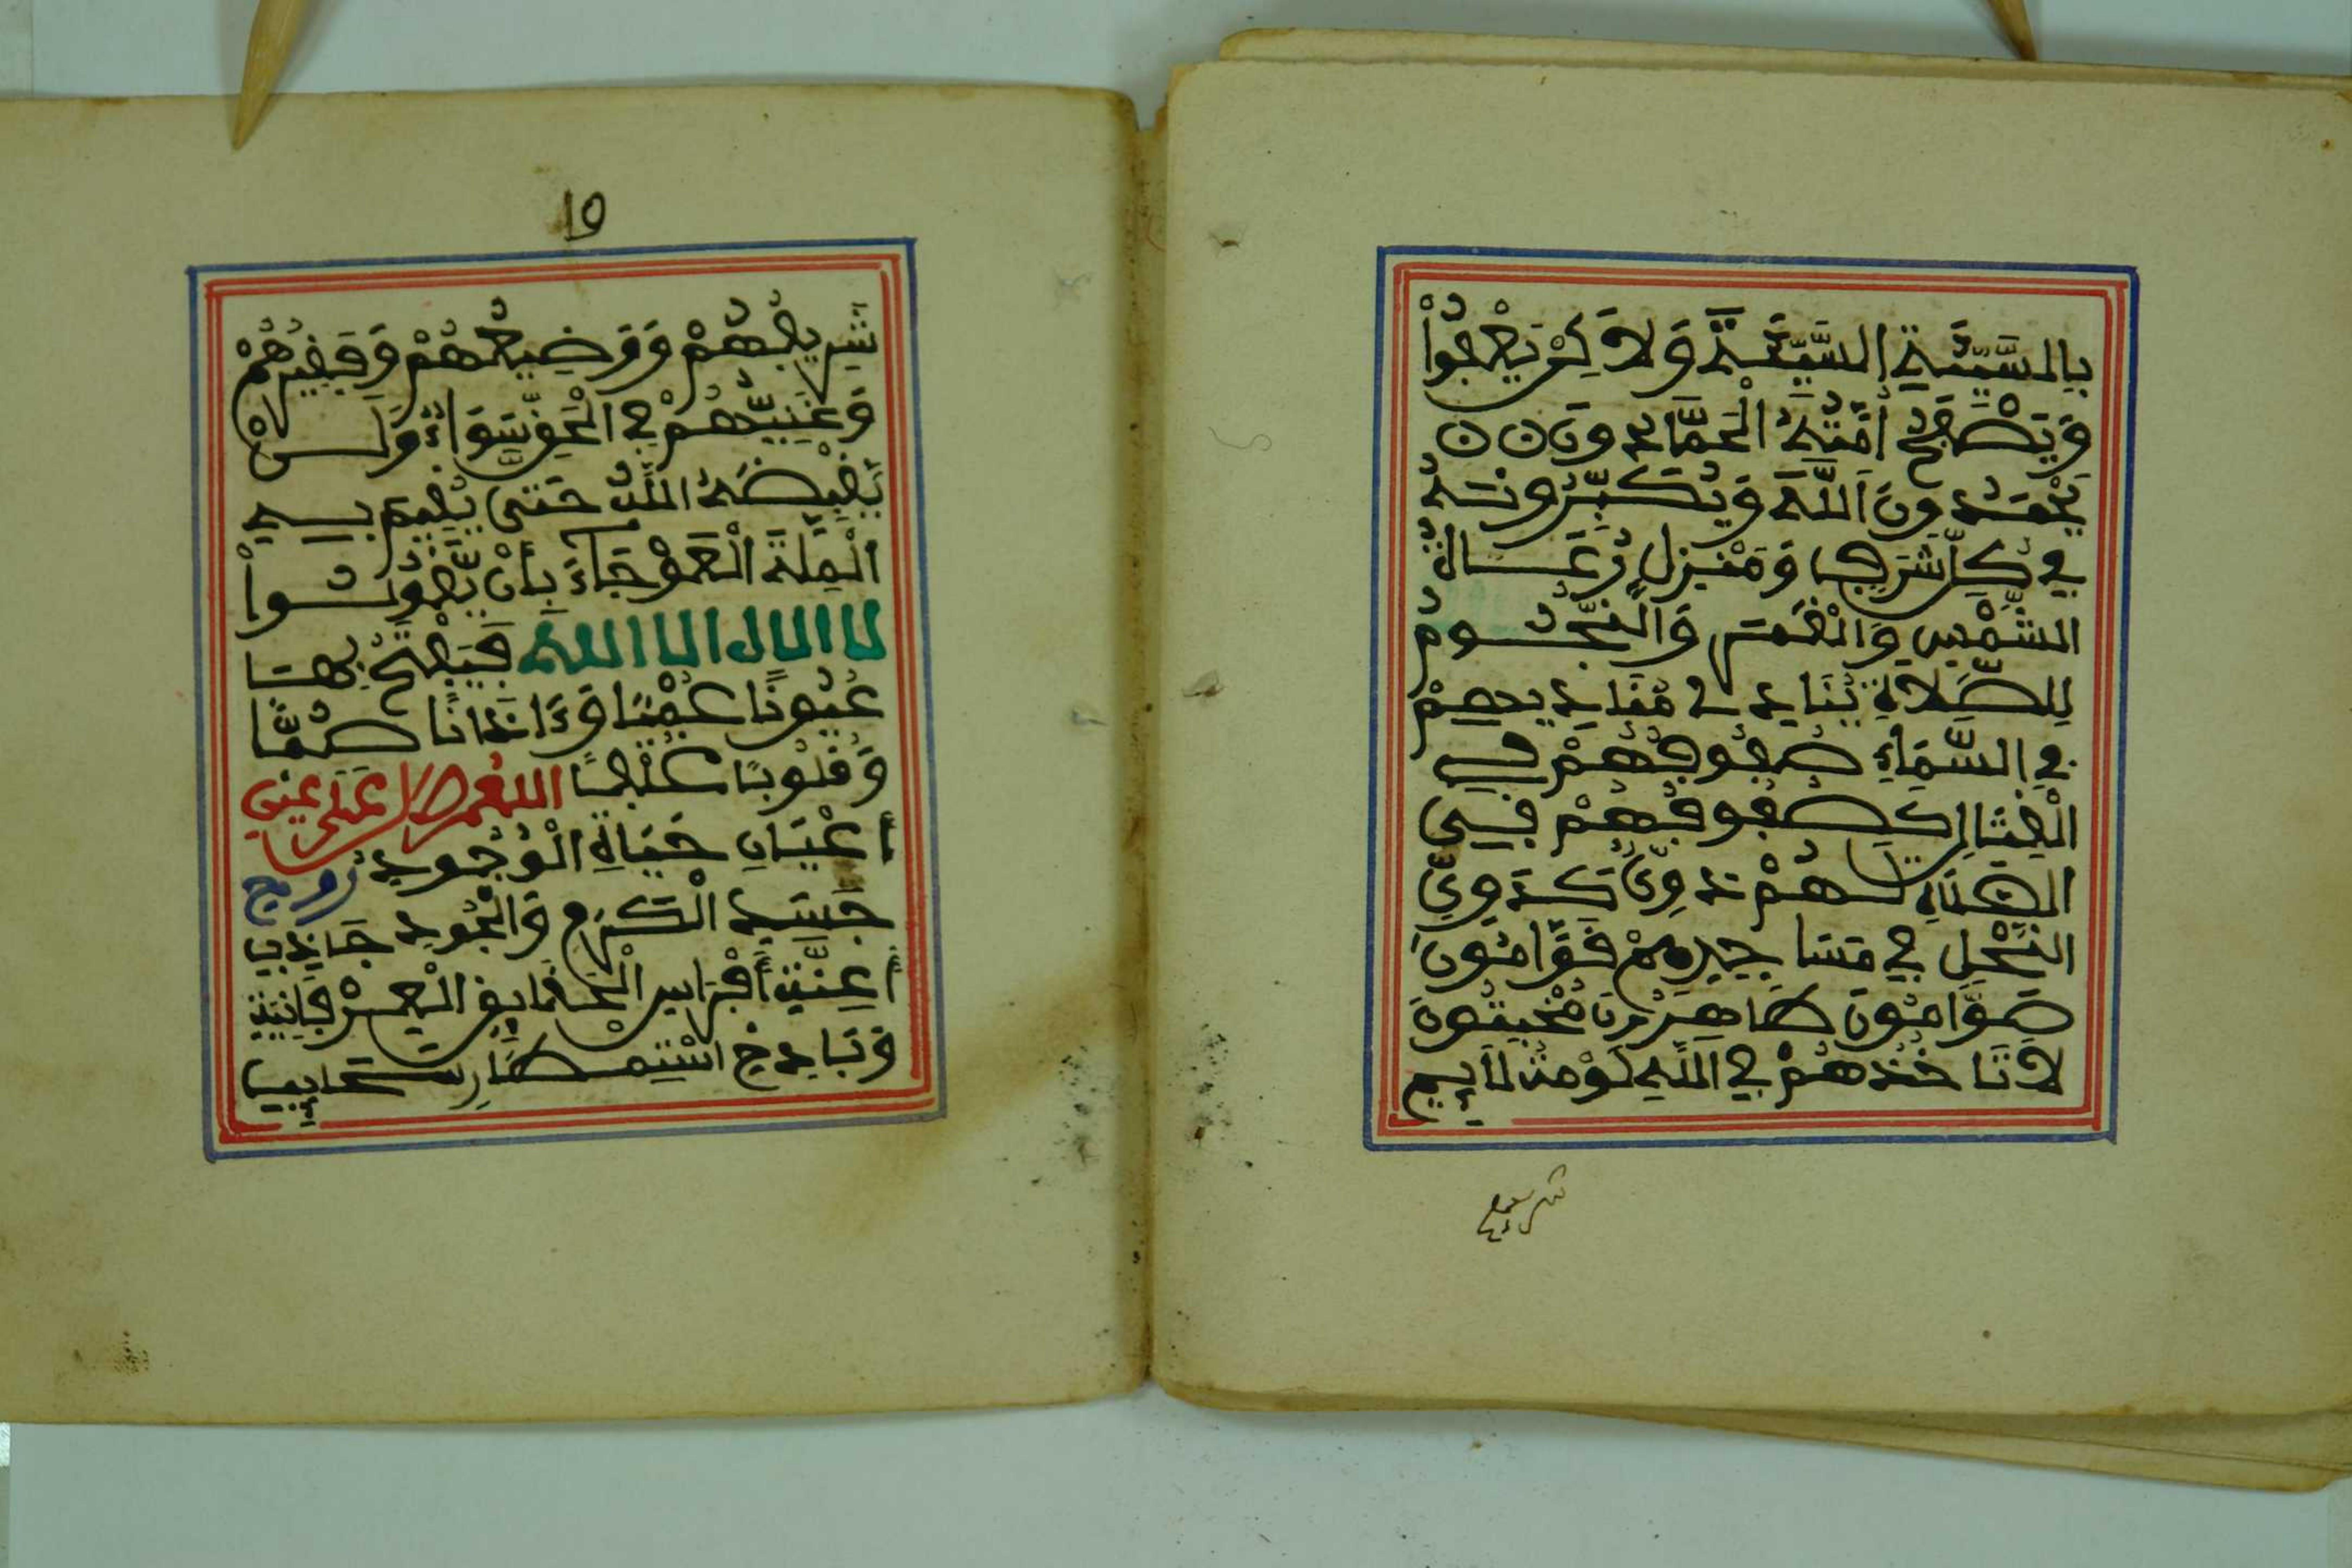 بِالسَّيِّئَةِ السَّيِّئَةَ وَلَاكِنْ يَعْفُواْ
وَيَصْفَحُ أُمَّتُهُ الْحَمَّادُونَ
يَحْمَدُونَ اللَّهَ وَيُكَبِّرُونَهُ
فِي كُلِّ شَرَفٍ وَمَنْزِلٍ رُعَاةُ
الشَّمْسِ وَالْقَمَرِ وَالنُّجُومِ
لِلصَّلَاةِ يُنَادِي مُنَادِيهِمْ
فِي السَّمَاءِ صُفُوفُهُمْ فِي
الْقِتَالِ كَصُفُوفِهِمْ فِي
الصَّلَاةِ لَهُمْ دَوِيٌّ كَدَوِيِّ
النَّحْلِ فِي مَسَاجِدِهِمْ قَوَّامُونَ
صَوَّامُونَ طَاهِرُونَ مُخْبِتُونَ
لَا تَاخُذُهُمْ فِي اللَّهِ لَوْمَةُ لَائِمٍ
شريعهم
19
شَرِيفُهُمْ وَوَضِيعُهُمْ وَفَقِيرُهُمْ
وَغَنِيُّهُمْ فِي الْحَقِّ سَوَاءٌ وَلَنْ
يَقْبِضَهُ اللَّهُ حَتَّى يُقِيمَ بِهِ
الْمِلَّةَ الْعَوْجَاءَ بِأَنْ يَّقُولُواْ
لا اله الا الله فَيَفْتَحُ بِهَا
عُيُونًا عُمْيًا وَءَاذَانًا صُمًّا
وَقُلُوبًا غُلْفًا اللهم صل على عين
أَعْيَانِ حَيَاةِ الْوُجُودِ روح
جَسَدِ الْكَرَمِ وَالْجُودِ جَاذِبِ
أَعِنَّةِ أَفْرَاسِ الْحَقَايِقِ
وَ اسْتِمْطَارِ سَحَايِبِ